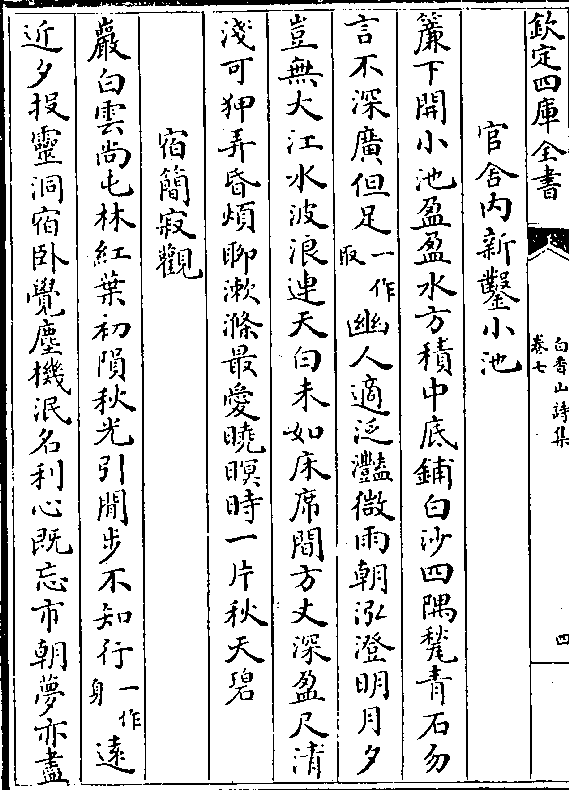 欽定四庫全書
白香山詩集
卷七
四
官舍内新鑿小池
簾下開小池盈盈水方積中底鋪白沙四隅甃青石勿
言不深廣但足一作取幽人適泛灔微雨朝泓澄明月夕
豈無大江水波浪連天白未如床席間方丈深盈尺清
淺可狎弄昏煩聊漱滌最愛曉暝時一片秋天碧
宿簡寂觀
巖白雲尚屯林紅葉初隕秋光引閒步不知行一作身遠
近夕投靈洞宿卧覺塵機泯名利心既忘市朝夢亦盡